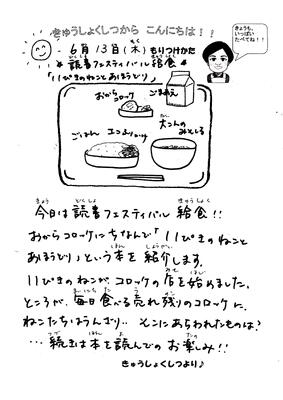 きゅうしょくしつから こんにちは!!
きょうも、
いっぱい
たべてね!!
6月13日(木)もりつけかた
★読書フェスティバル給食★
「11ぴきのねことあほうどり」
おからコロッケ
ごはん
エコふりかけ
大こんの
みそしる
今日は読書フェスティバル給食!!
おからコロッケにちなんで「11ぴきのねこと
あほうどり」という本を紹介します。
11ぴきのねこが、コロッケの店を始めました。
ところが、毎日食べる売れ残りのコロッケに、
ねこたちはうんざり‥ そこにあらわれたものは?
…続きは本を読んでの お楽しみ!!
きゅうしょくしつより♪